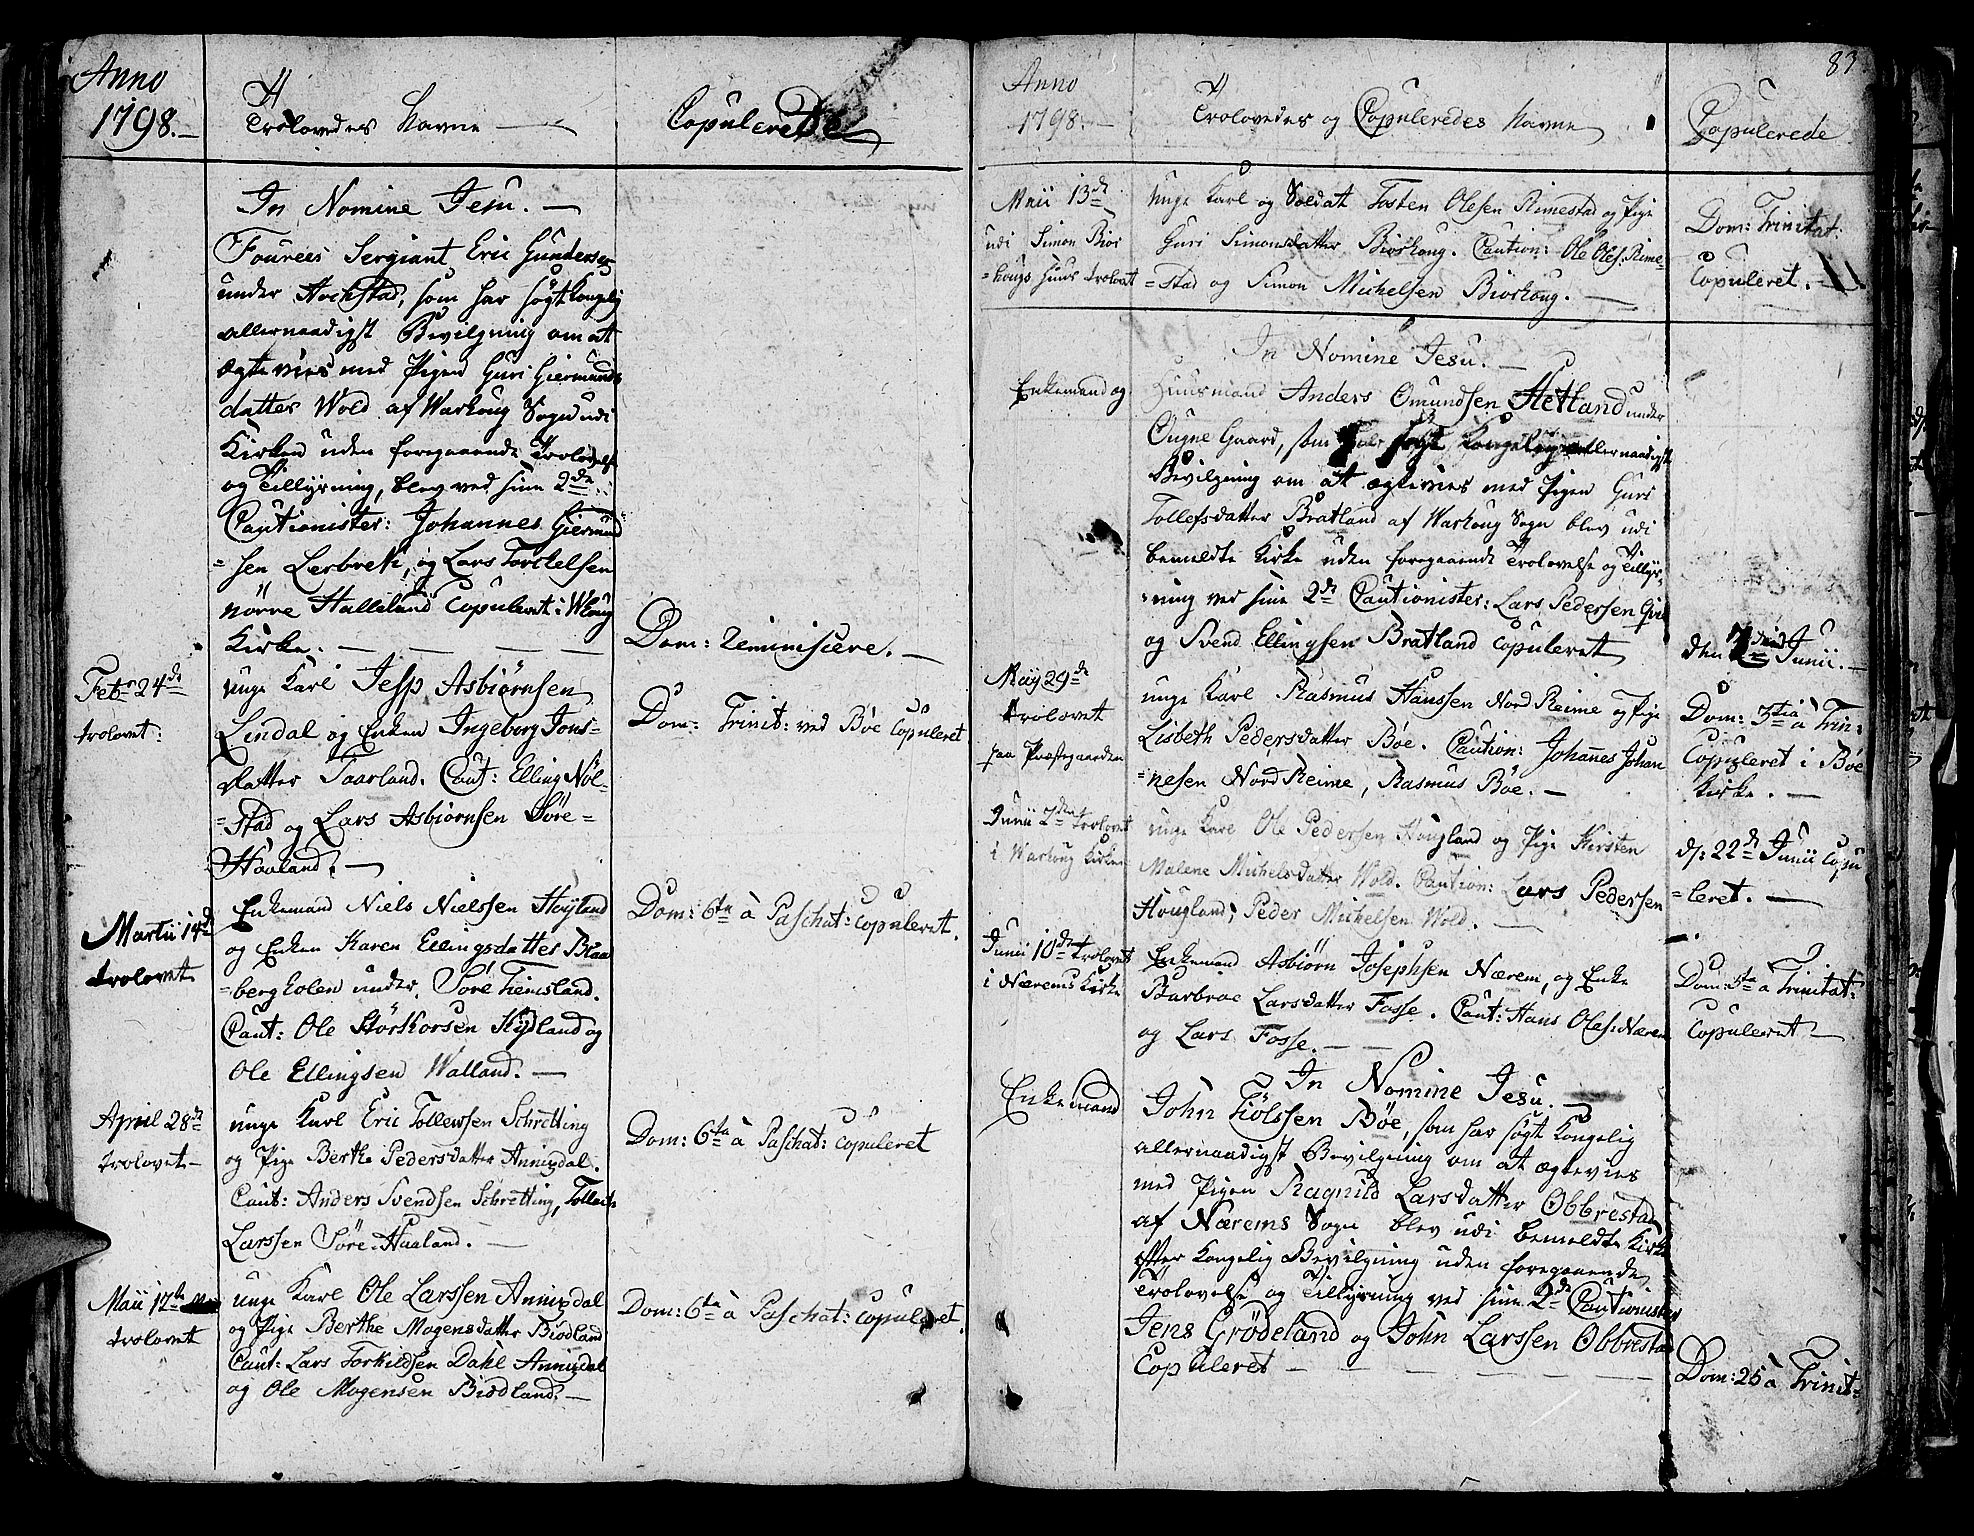 Anno
1798.
Trolovedes Navne
Copulerede
In Nomine Jesu.
Fourees Sergiant Eric Gundersen
under Hochstad, som har søgt Kongelig
allernaadigst Bevilgning om at
ægtevies med Pigen Guri Giermunds
datter Wold af Warhoug Sogn udi
Kirken uden foregaaende Trolovelse
og Tillysning, blev ved sine 2de
Cautionister: Johannes Giermund
=sen Lerbrek, og Lars Torkelsen
nörre Halleland Copuleret i Whoug
Kirke.
Dom: Reminiscere.
Febr 24de
trolovet.
unge Karl Jesp Asbiörnsen
Lindal og Enken Ingeborg Jons=
datter Taarland. Caut: Elling Nöl=
=stad og Lars Asbiörnsen Söre=
Haaland.
Dom: Trinit: ved Bøe Copuleret
Martii 14d
trolovet
Enkemand Niels Nielssen Høyland
og Enken Karen Ellingsdatter Braa
=berg holen under Söre Tiemsland.
Caut: Ole Störkorsen Hydland og
Ole Ellingsen Walland.
Dom: 6ta à Paschat: Copuleret.
April 28de
trolovet
unge Karl Eric Tollewsen Schretting
og Pige Berthe Pedersdatter Annisdal.
Caut: Anders Svendsen Schretting, Tollew
Larssen Söre-Haaland.
Dom: 6ta à Paschat: Copuleret
Maii 12te
trolovet
unge Karl Ole Larssen Annisdal
og Pige Berthe Mogensdatter Biödland
Caut: Lars Torkildsen Dahl Annisdal
og Ole Mogensen Biödland.
Dom: 6ta à Paschat: Copuleret.
83
Anno
1798.
Trolovedes og Copuleredes Navne
Copulerede
Maii 13de
udi Simon Bior
=hougs Huus trolovet
unge Karl og Soldat Tosten Olesen Rimestad og Pige
Guri Simonsdatter Biorhoug. Caution: Ole Oles: Rime=
=stad og Simon Michelsen Biorhoug.
Dom: Trinitat:
Copuleret.
In Nomine Jesu.
Enkemand og
Huusmand Anders Omundsen Hetland under
Ougne Gaard, som har søgt Kongelig allernaadigst
Bevilgning om at ægtevies med Pigen Guri
Tollefsdatter Bratland af Warhoug Sogn blev udi
bemeldte Kirke uden foregaaende Trolovelse og Tillys=
=ning ved sine 2de Cautionister: Lars Pedersen
og Svend Ellingsen Bratland Copuleret
den Junii.
May 29de
trolovet
paa Præstegaarden
unge Karl Rasmus Hanssen Nord Reime og Pige
Lisbeth Pedersdatter Bøe. Caution: Johanes Johan
=nesen Nord Reime, Rasmus Bøe.
Dom: 3tia à Trin:
Copuleret i Bøe
Kirke.
Junii 7de trolovet
i Warhoug Kirke
unge Karl Ole Pedersen Hougland og Pige Kirsten
Malene Michelsdatter Wold. Caution: Lars Pedersen
Hougland, Peder Michelsen Wold.
d: 22de Junii Copu
=leret.
Junii 10de trolovet
i Nærems Kirke
Enkemand Asbiörn Josephsen Nærem, og Enke
Barbroe Larsdatter Fosse. Caut: Hans Oles: Nærem
og Lars Fosse.
Dom: 5ta à Trinitat:
Copuleret
In Nomine Jesu.
Enkemand
John Fiölssen Bøe, som har søgt Kongelig
allernaadigst Bevilgning om at ægtevies
med Pigen Ragnild Larsdatter Obbrestad
af Nærems Sogn blev udi bemeldte Kirke
efter Kongelig Bevilgning uden foregaaende
Trolovelse og Tillysning ved sine 2de Cautionister
Jens Grödeland og John Larssen Obbrestad
Copuleret
Dom: 25 à Trinit=